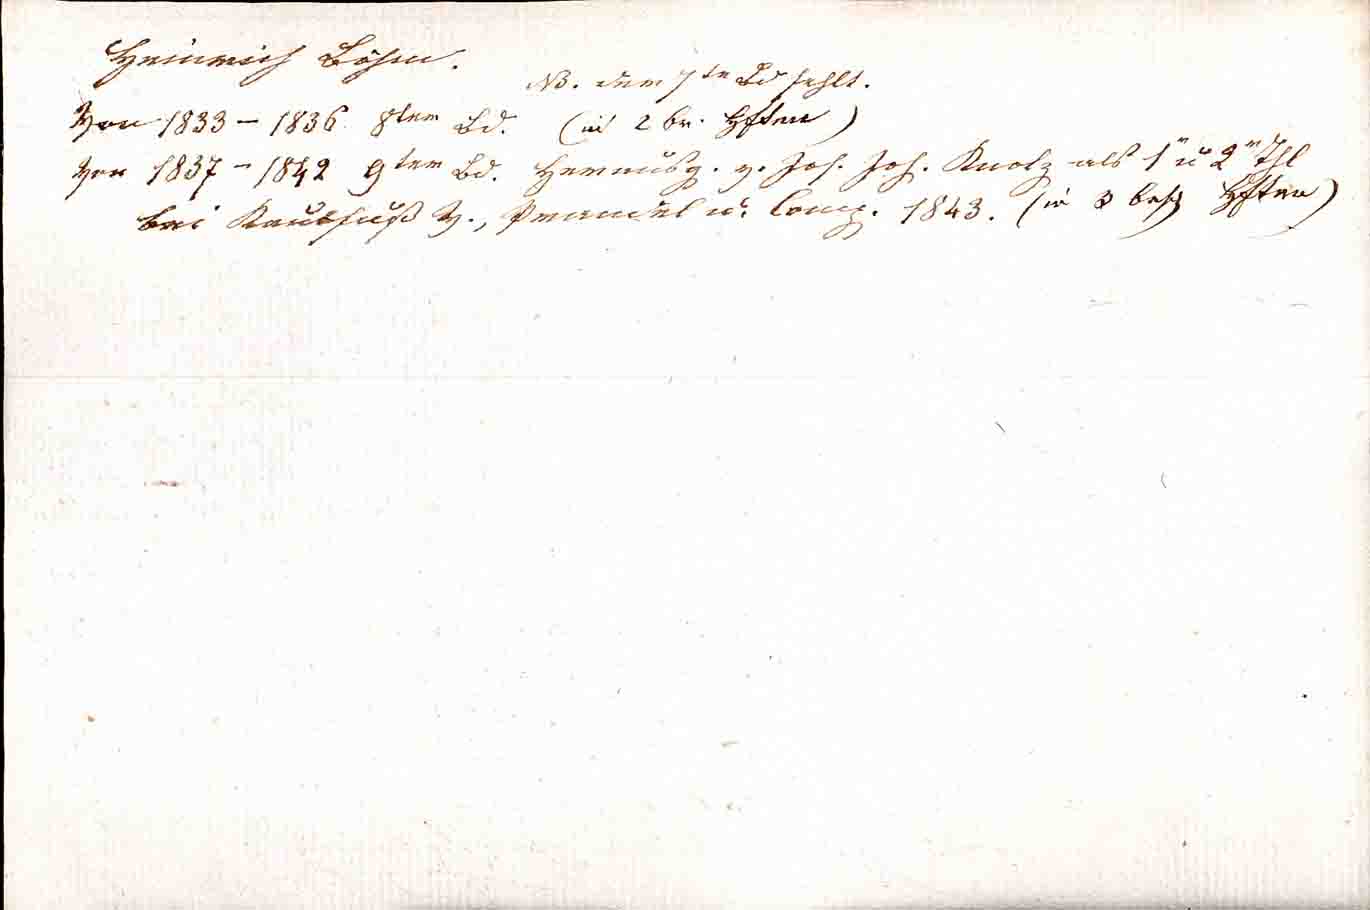 Heinrich Böhm.
NB. der 7te Bd fehlt.
Von 1833 – 1836 8ter Bd. (in 2 br. Hften)
Von 1837 – 1842 9ter Bd. Herausg. v. Jos. Joh. Knolz als 1" u 2" Thl
bei Kaulfuß W., Prandel u. Comp. 1843. (in 3 besch Hften)